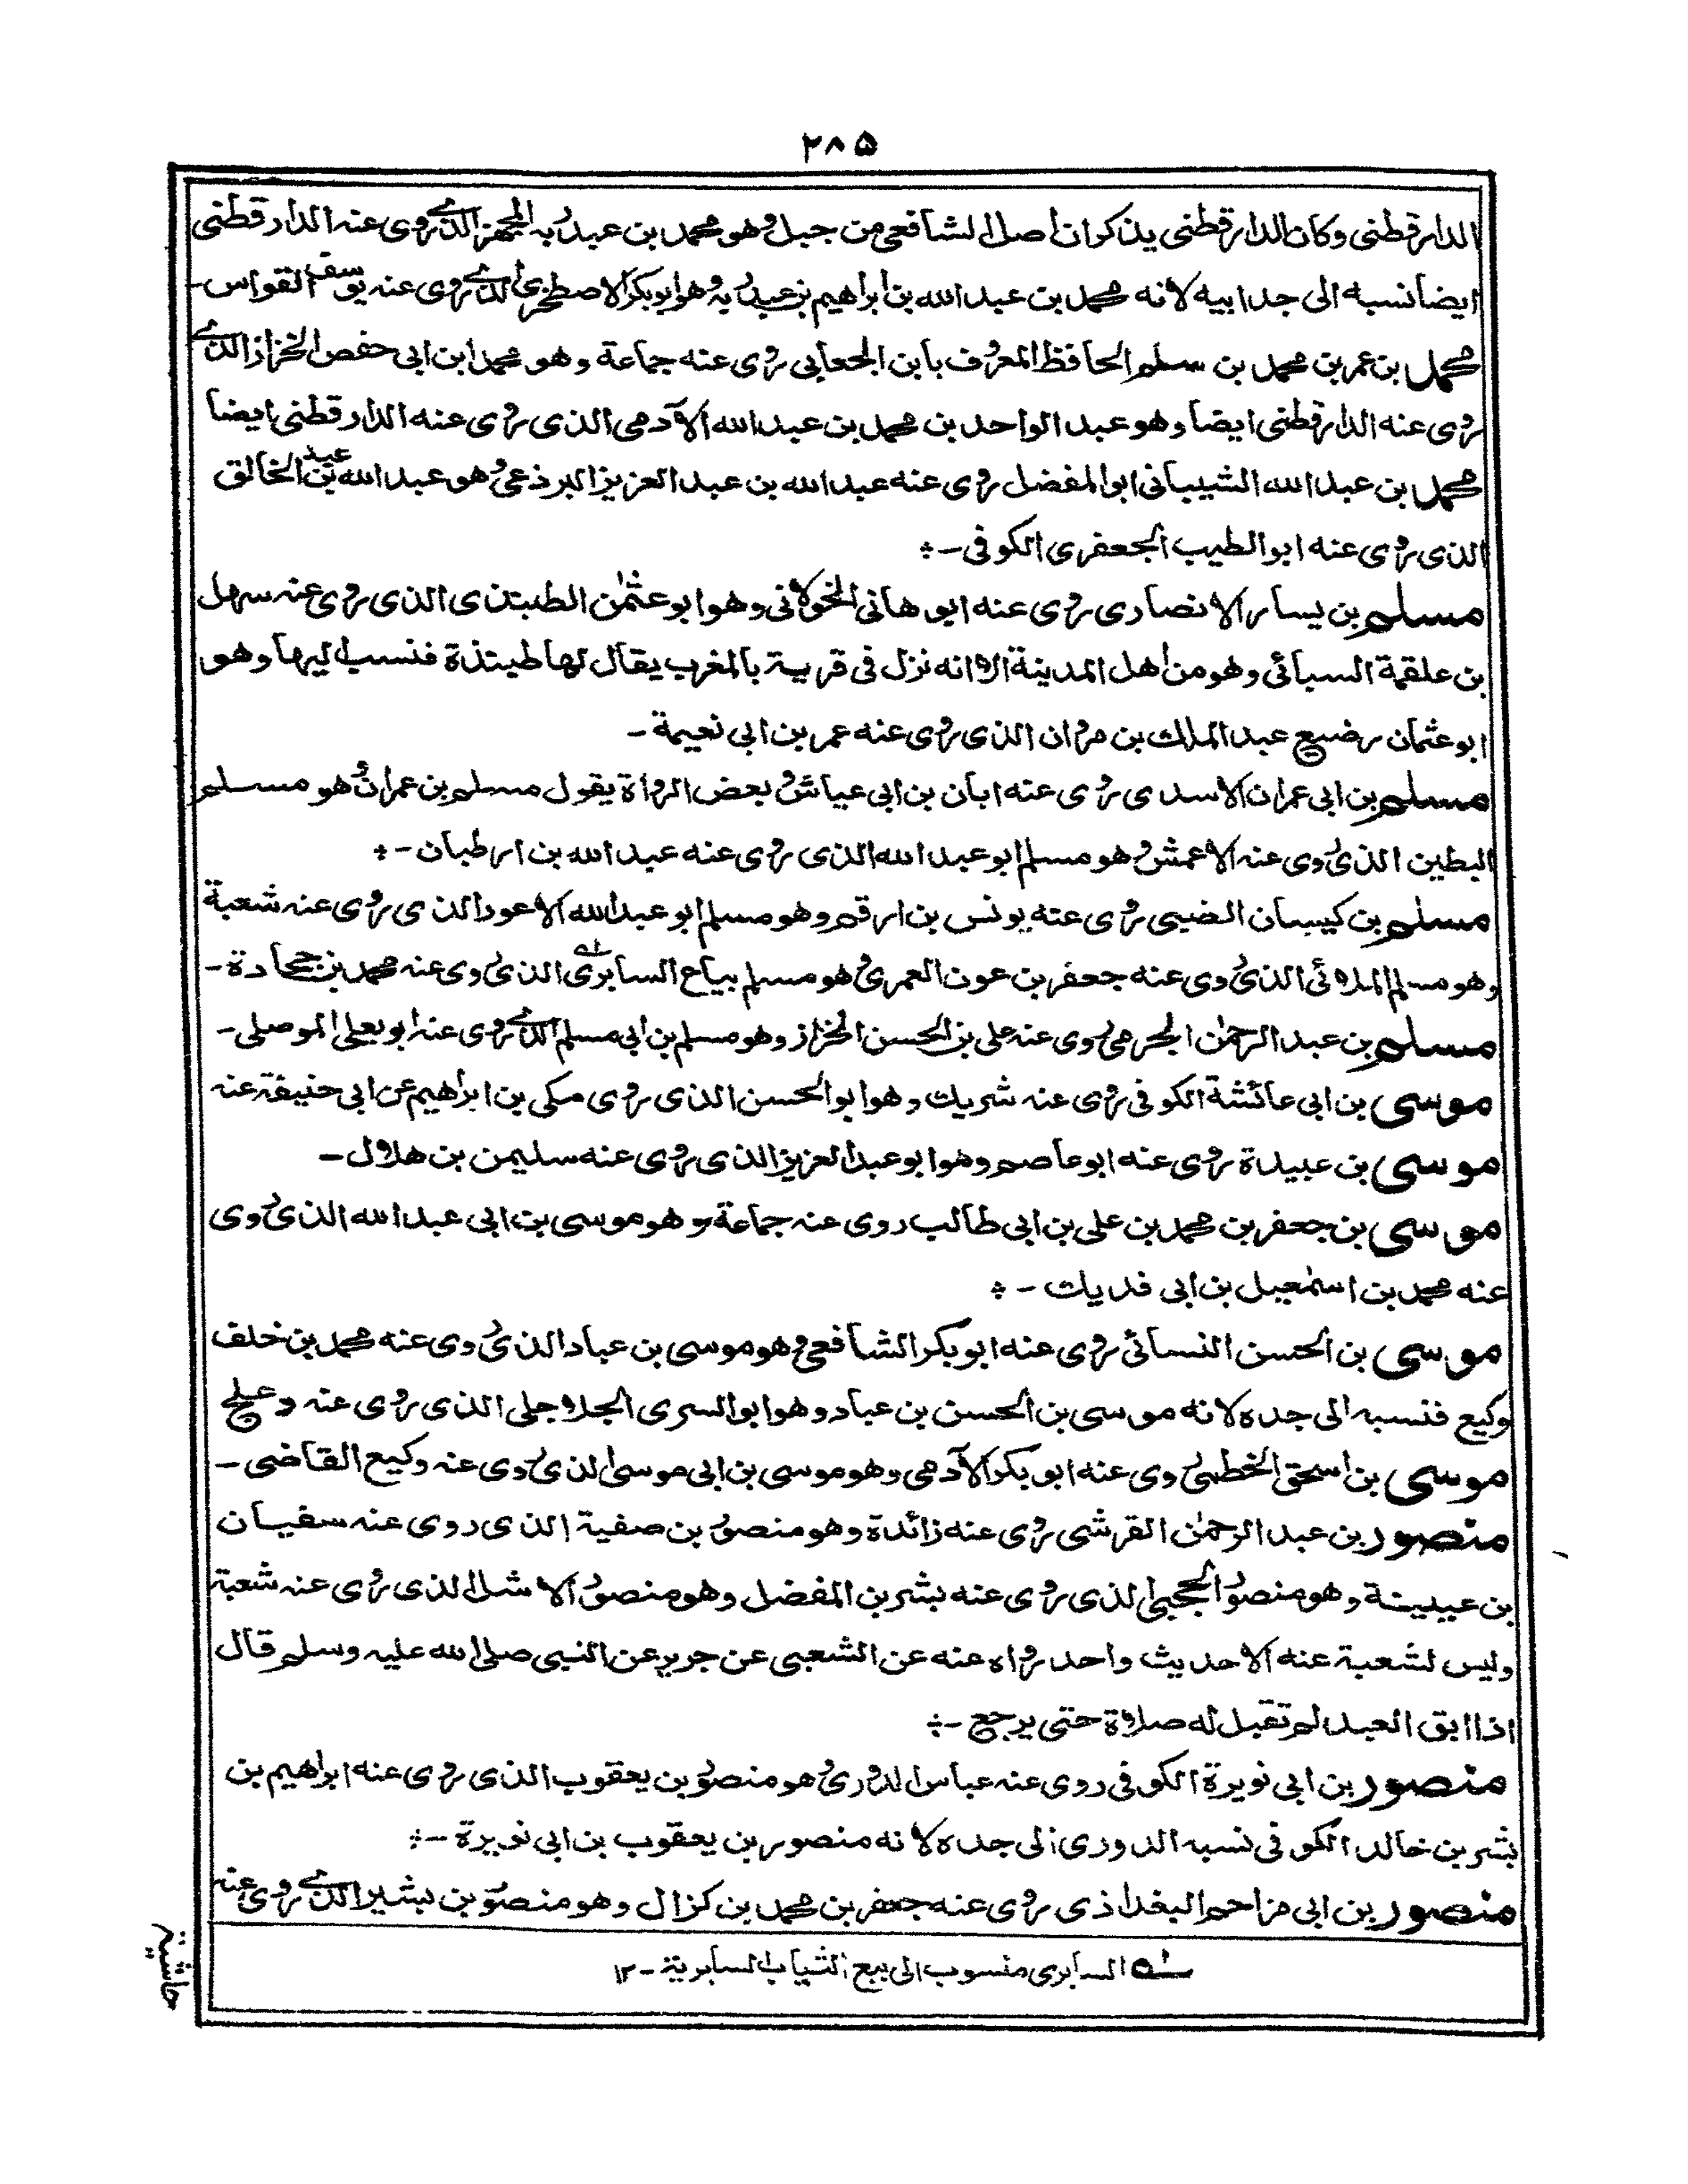 ۲۸۵
الدارقطنی وکان الدارقطنی یذکران اصل الشافعی من جبل وهو محمد بن عبدربه المجهز الذی روی عنه الدارقطنی
ایضا نسبه الی جدابیه لانه محمد بن عبدالله بن ابراهیم بن عبدربه وهو ابوبکر الاصطخری الذی روی عنه یوسف القواس -
محمد بن عمر بن محمد بن سلم الحافظ المعروف بابن الجعابی روی عنه جماعة وهو محمد ابن ابی حفص الخزاز الذی
روی عنه الدارقطنی ایضا وهو عبد الواحد بن محمد بن عبدالله الآدمی الذی روی عنه الدارقطنی ایضا
محمد بن عبدالله الشیبانی ابوالمفضل روی عنه عبدالله بن عبد العزیز البرذعی وهو عبد الله بن عبد الخالق
الذی روی عنه ابوالطیب الجعفری الکوفی -
مسلم بن یسار الانصاری روی عنه ابوهانی الخولانی وهو ابو عثمٰن الطبتذی الذی روی عنه سهل
بن علقمة السبائی وهو من اهل المدینة الا انه نزل فی قریة بالمغرب یقال لها طیتذة فنسب الیها وهو
ابو عثمان رضیع عبد الملک بن مروان الذی روی عنه عمر بن ابی نعیمة -
مسلم بن ابی عمران الاسدی روی عنه ابان بن ابی عیاش وبعض الرواة یقول مسلم بن عمران وهو مسلم
البطین الذی روی عنه الاعمش وهو مسلم ابو عبد الله الذی روی عنه عبد الله بن ارطبان -
مسلم بن کیسان الضبی روی عنه یونس بن ارقم وهو مسلم ابو عبدالله الاعور الذی روی عنه شعبة
وهو مسلم الملائی الذی روی عنه جعفر بن عون العمری وهو مسلم بیاع السابری الذی روی عنه محمد بن جحادة -
مسلم بن عبد الرحمٰن الجرمی روی عنه علی بن الحسن الخزاز وهو مسلم بن ابی مسلم الذی روی عنه ابو یعلی الموصلی -
موسی بن ابی عائشة الکوفی روی عنه شریک وهو ابو الحسن الذی روی مکی بن ابراهیم عن ابی حنیفة عنه
موسی بن عبیدة روی عنه ابوعاصم وهو ابو عبد العزیز الذی روی عنه سلیمن بن هلال -
موسی بن جعفر بن محمد بن علی بن ابی طالب روی عنه جماعة وهو موسی بن ابی عبد الله الذی روی
عنه محمد بن اسمٰعیل بن ابی فدیک -
موسی بن الحسن النسائی روی عنه ابو بکر الشافعی وهو موسی بن عباد الذی روی عنه محمد بن خلف
وکیع فنسبه الی جده لانه موسی بن الحسن بن عباد وهو ابو السری الجلاجلی الذی روی عنه دعلج
موسی بن اسحق الخطمی روی عنه ابو بکر الآدمی وهو موسی بن ابی موسی الذی روی عنه وکیع القاضی -
منصور بن عبد الرحمٰن القرشی روی عنه زائدة وهو منصور بن صفیة الذی روی عنه سفیان
بن عیینة وهو منصور الحجبی الذی روی عنه بشر بن المفضل وهو منصور الاشل الذی روی عنه شعبة
ولیس لشعبة عنه الاحدیث واحد رواه عنه عن الشعبی عن جریر عن النبی صلی الله علیه وسلم قال
اذا ابق العبد لم تقبل له صلاة حتی یرجع -
منصور بن ابی نویرة الکوفی روی عنه عباس الدوری وهو منصور بن یعقوب الذی روی عنه ابراهیم بن
بشر بن خالد الکوفی نسبه الدوری الی جده لانه منصور بن یعقوب بن ابی نویرة -
منصور بن ابی مزاحم البغداذی روی عنه جعفر بن محمد بن کزال وهو منصور بن بشیر الذی روی عنه
حاشیة
له السابری منسوب الی بیع الثیاب السابریة - ۱۲